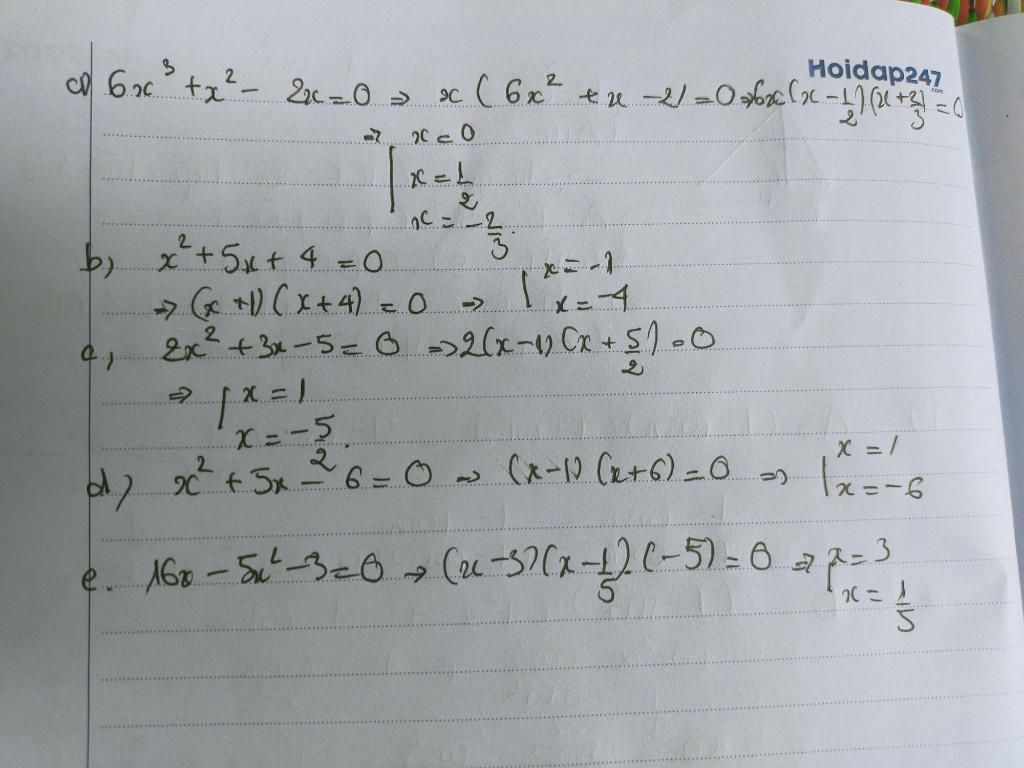 Hoidap247
.com
a) 6x³ + x² - 2x = 0 ⇒ x(6x² + x - 2) = 0 ⇒ 6x(x - 1/2)(x + 2/3) = 0
⇒ [ x = 0
x = 1/2
x = -2/3.
b) x² + 5x + 4 = 0
⇒ (x + 1)(x + 4) = 0 ⇒ [ x = -1
x = -4
c, 2x² + 3x - 5 = 0 ⇒ 2(x - 1)(x + 5/2) = 0
⇒ [ x = 1
x = -5/2.
d) x² + 5x - 6 = 0 ⇒ (x - 1)(x + 6) = 0 ⇒ [ x = 1
x = -6
e. 16x - 5x² - 3 = 0 ⇒ (x - 3)(x - 1/5).(-5) = 0 ⇒ [ x = 3
x = 1/5